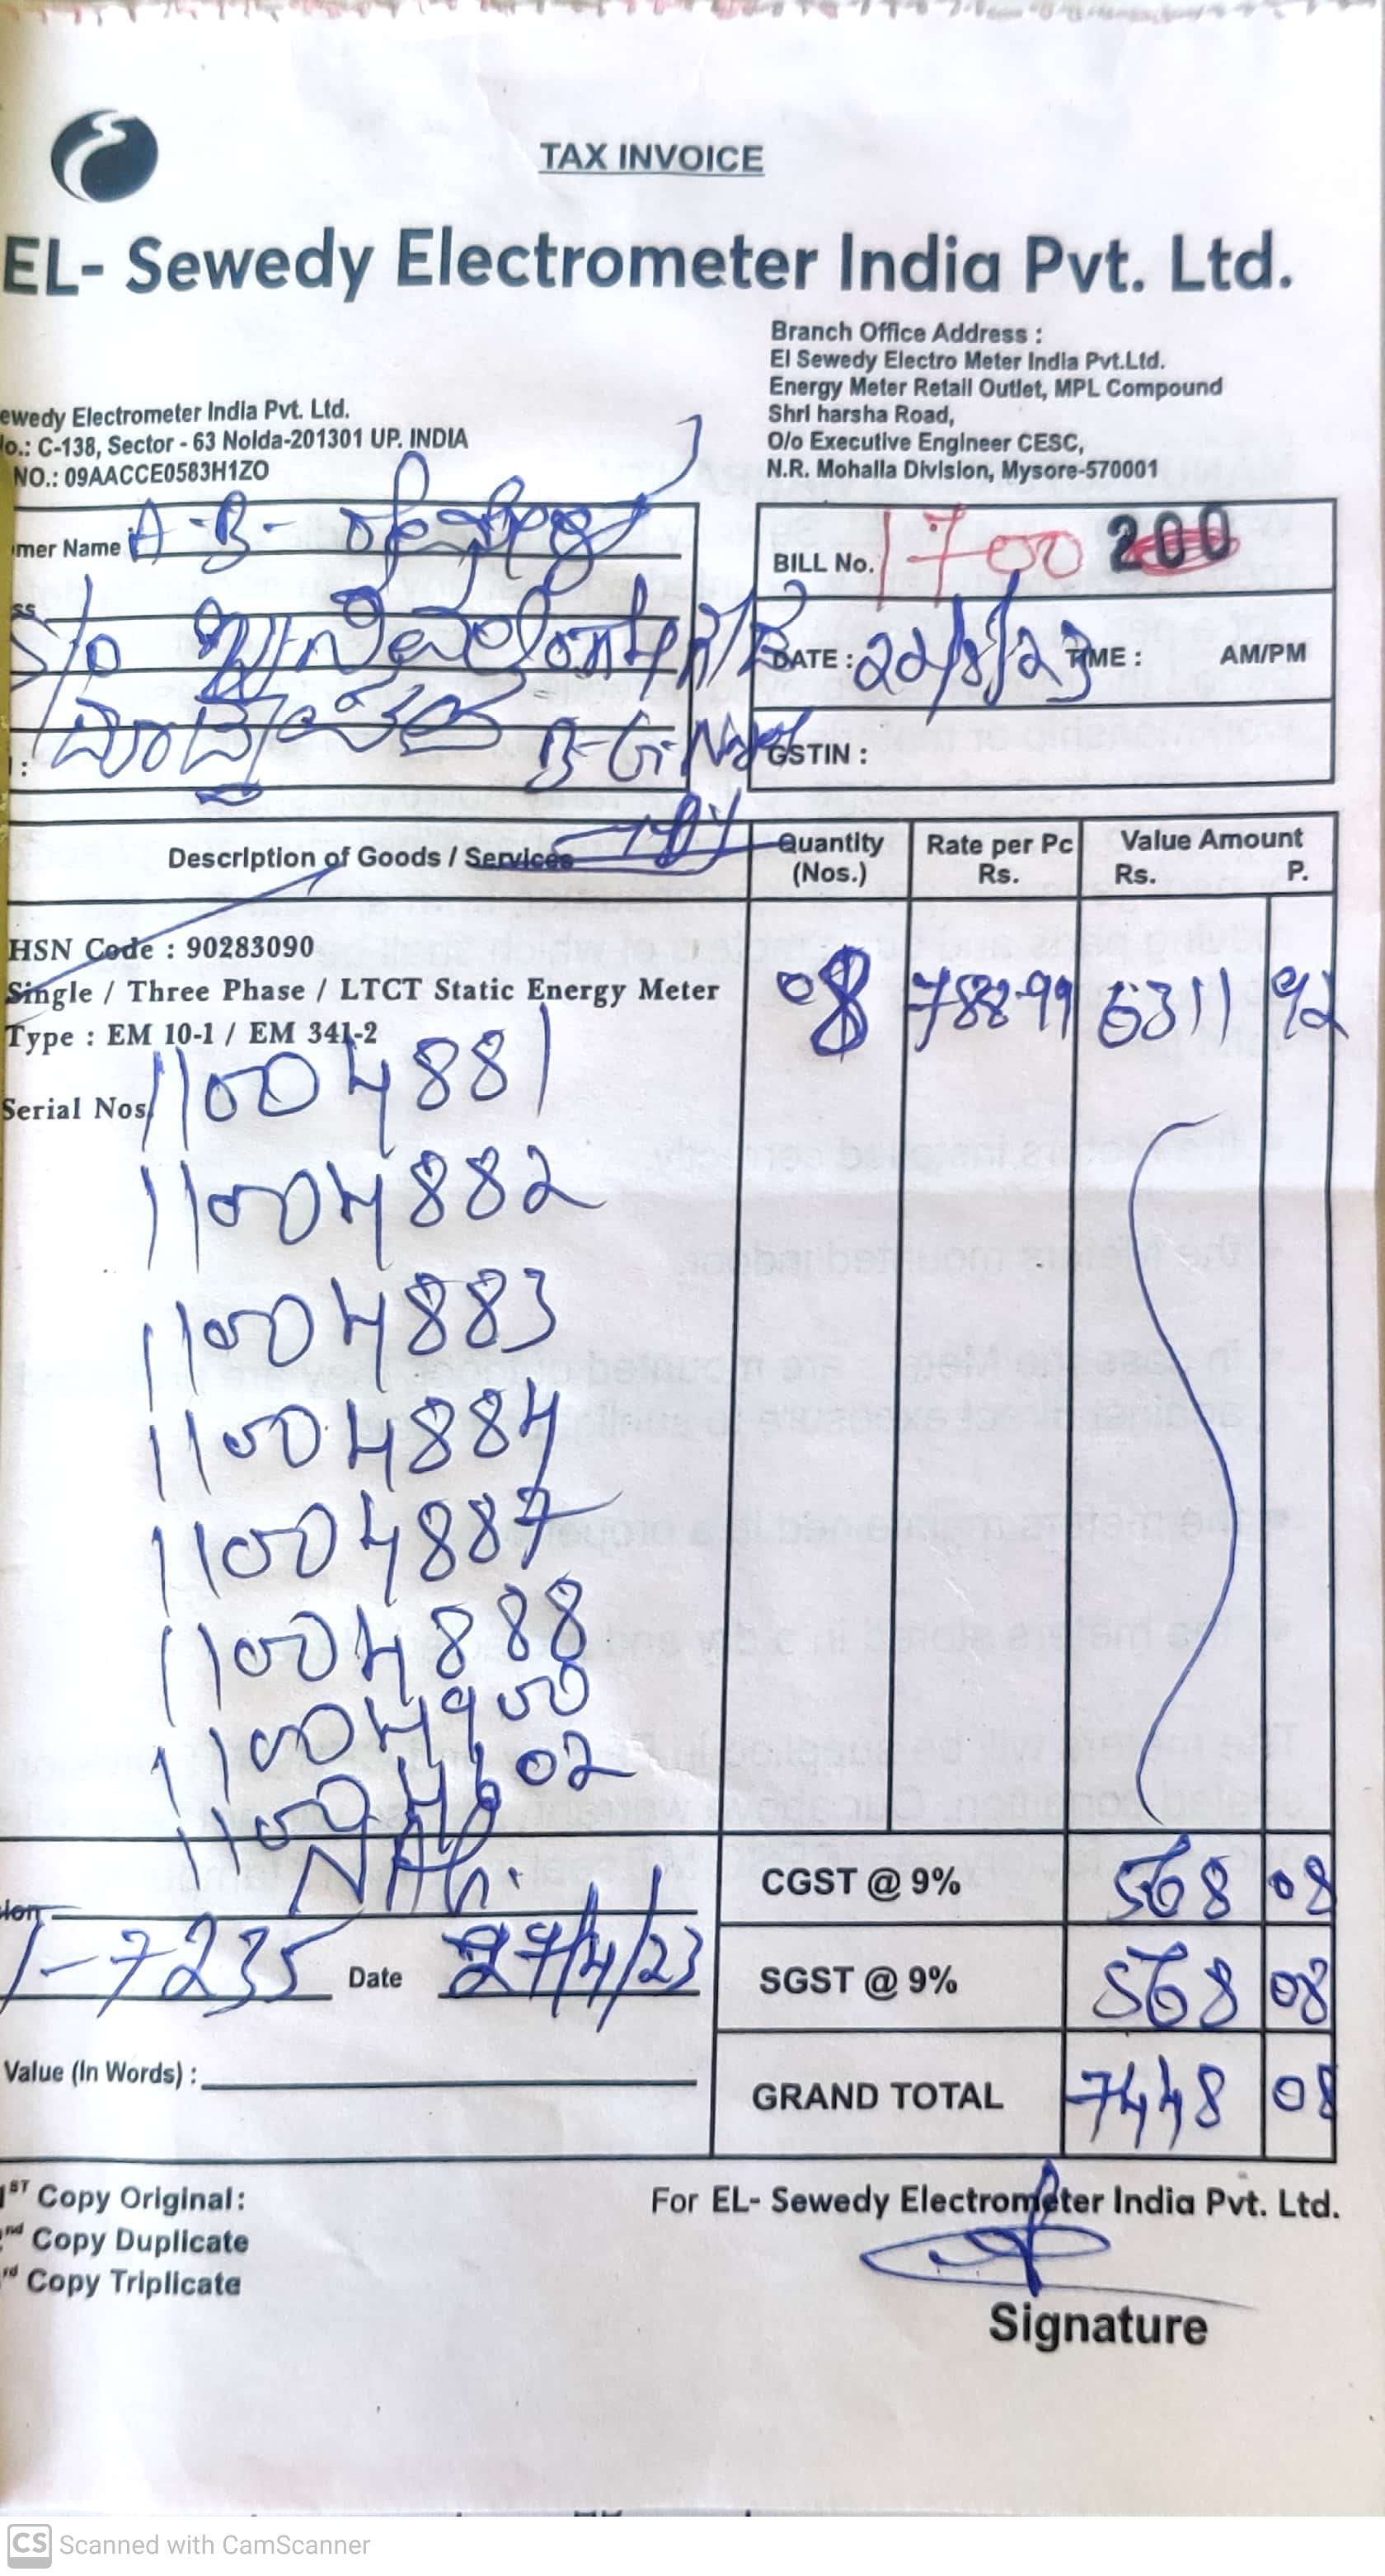 TAX INVOICE
EL- Sewedy Electrometer India Pvt. Ltd.
Branch Office Address :
El Sewedy Electro Meter India Pvt.Ltd.
Energy Meter Retail Outlet, MPL Compound
Shri harsha Road,
O/o Executive Engineer CESC,
N.R. Mohalla Division, Mysore-570001
ewedy Electrometer India Pvt. Ltd.
lo.: C-138, Sector - 63 Noida-201301 UP. INDIA
NO.: 09AACCE0583H1ZO
mer Name A-B-
ss S/o
B-G-
BILL No. 1700 200
DATE : 22/8/23 TIME : AM/PM
GSTIN :
Description of Goods / Services
Quantity (Nos.)
Rate per Pc Rs.
Value Amount Rs. P.
HSN Code : 90283090
Single / Three Phase / LTCT Static Energy Meter
Type : EM 10-1 / EM 341-2
08 788-99 6311 92
Serial Nos. 11004881
11004882
11004883
11004884
11004887
11004888
11004900
CGST @ 9% 568 08
SGST @ 9% 568 08
GRAND TOTAL 7448 08
ion
1-7235 Date 27/4/23
Value (In Words) :
1ST Copy Original:
nd Copy Duplicate
rd Copy Triplicate
For EL- Sewedy Electrometer India Pvt. Ltd.
Signature
CS Scanned with CamScanner